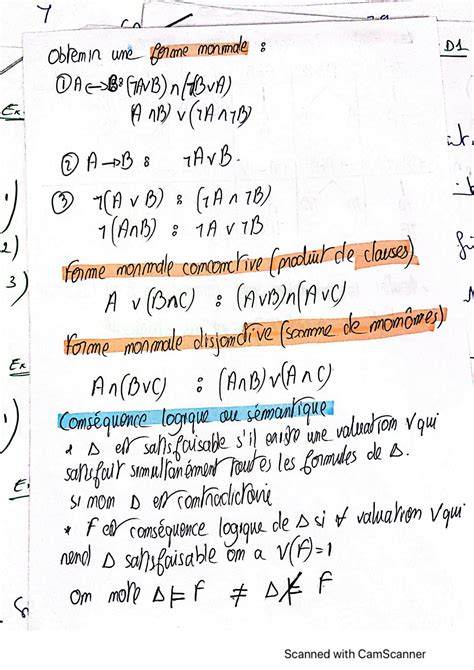 Obtenir une forme normale :
① A ↔ B : (¬A∨B) ∧ (¬B∨A)
A∧B) ∨ (¬A∧¬B)
② A → B : ¬A∨B.
③ ¬(A ∨ B) : (¬A ∧ ¬B)
¬(A∧B) : ¬A ∨ ¬B
Forme normale conjonctive (produit de clauses)
A ∨ (B∧C) : (A∨B)∧(A∨C)
Forme normale disjonctive (somme de monômes)
A∧(B∨C) : (A∧B)∨(A∧C)
Conséquence logique ou sémantique
* Δ est satisfaisable s'il existe une valuation V qui
satisfait simultanément toutes les formules de Δ.
si non Δ est contradictoire
* F est conséquence logique de Δ si ∀ valuation V qui
rend Δ satisfaisable on a V(F)=1
on note Δ ⊨ F ≠ Δ ⊭ F
D1
2)
3)
Ex
Scanned with CamScanner